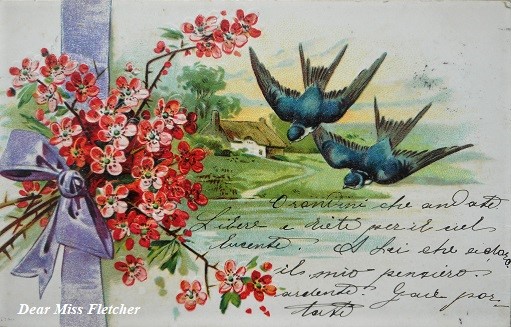 O rondini che andate
Libere e liete per il ciel
lucente! A Lei che adora
il mio pensiero
ardente! Gaie por-
tate
Dear Miss Fletcher